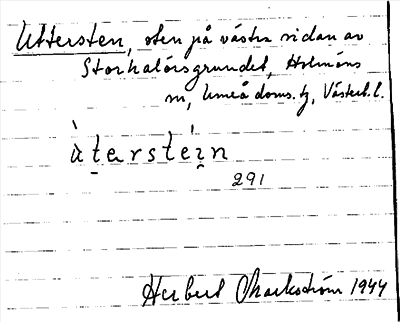 Uttersten, sten på västra sidan av
Storhalörsgrundet, Holmöns
sn, Umeå doms. tg, Västerb. l.
ùte̠rstéi̯n
291
Herbert Markström 1944